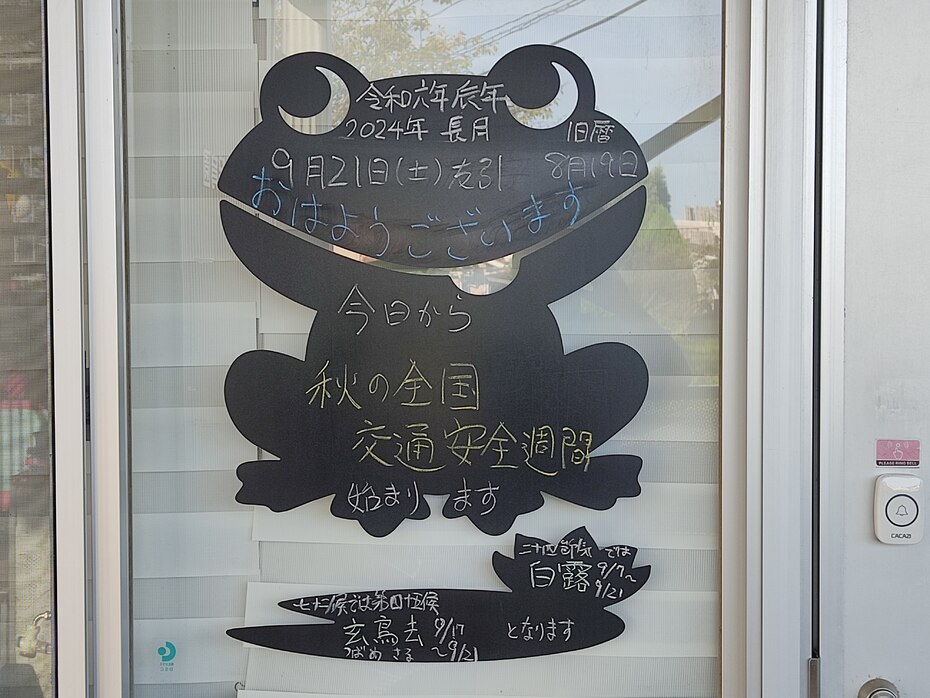 令和六年辰年
2024年 長月 旧暦
9月21日(土) 友引 8月19日
おはようございます
今日から
秋の全国
交通安全週間
始まります
二十四節気では
白露 9/7~
9/21
七十二候では第四十五候
玄鳥去 9/17 となります
つばめさる ~9/21
PLEASE RING BELL
CACAZI